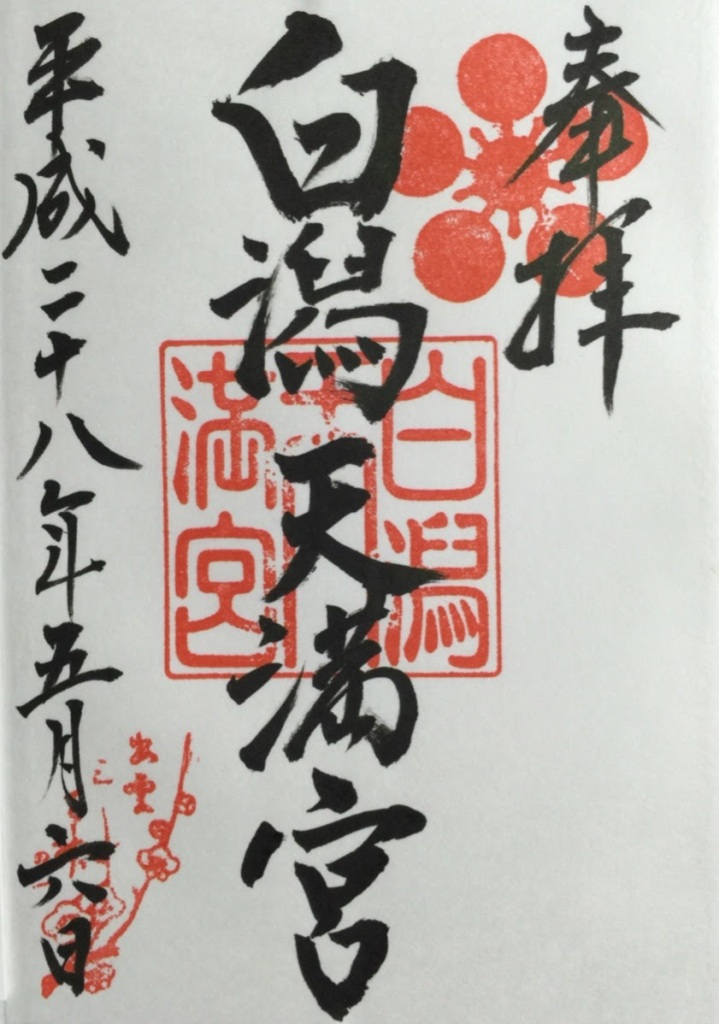 奉拝
白潟天満宮
白潟天満宮
平成二十八年五月六日
出雲